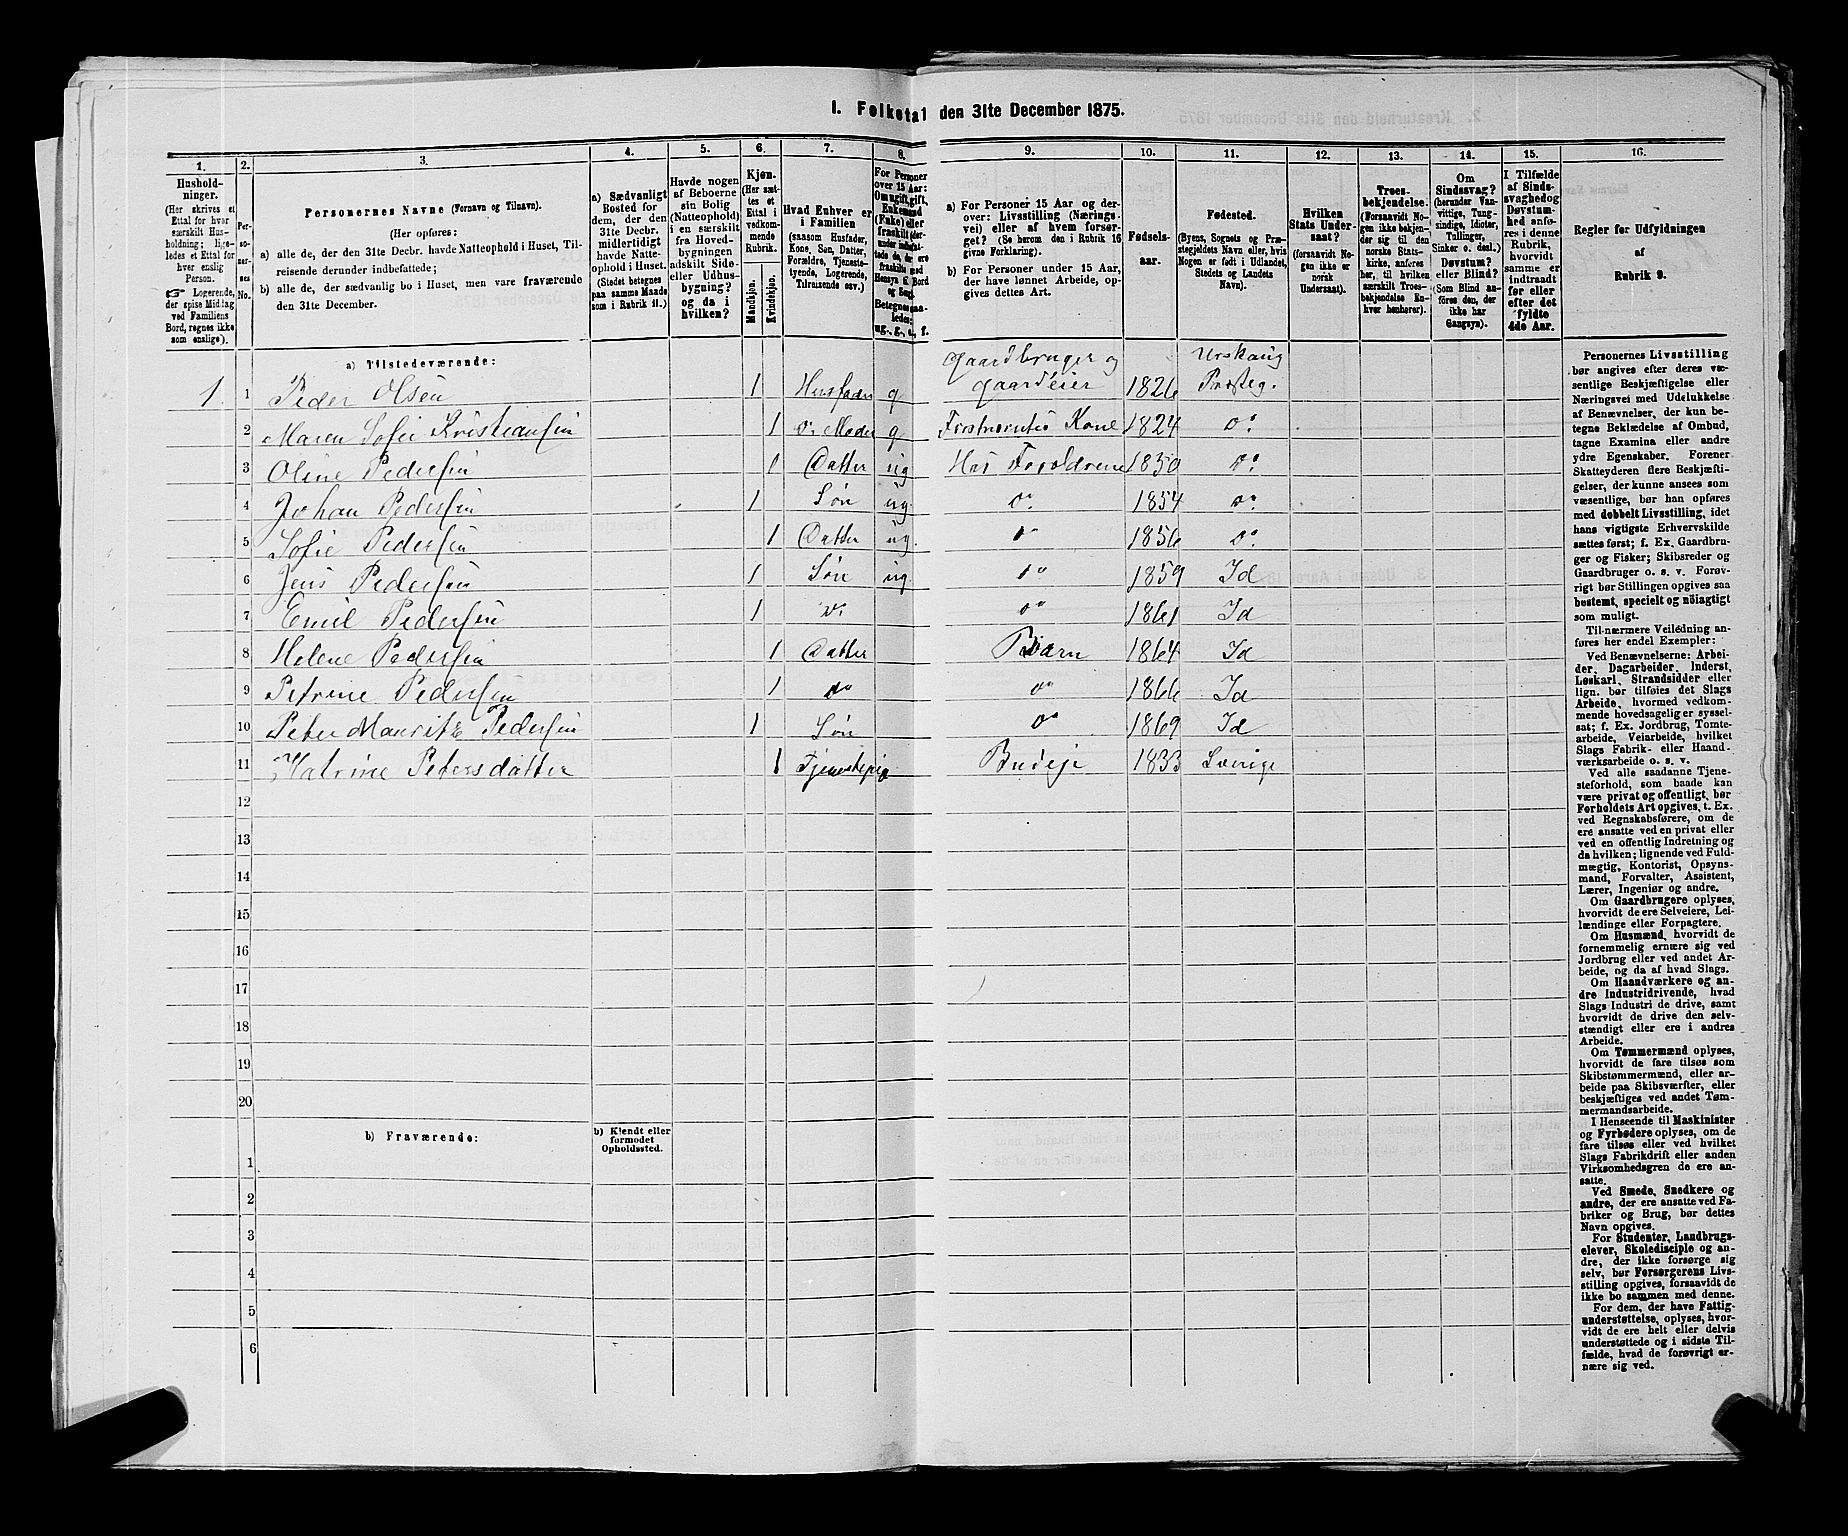 I. Folketal den 31te December 1875.
1. 2. 3. 4. 5. 6. 7. 8. 9. 10. 11. 12. 13. 14. 15. 16.
Hushold-
ninger.
(Her skrives et
Ettal for hver
særskilt Hus-
holdning; lige-
ledes et Ettal for
hver enslig
Person.
☞ Logerende,
der spise Middag
ved Familiens
Bord, regnes ikke
som enslige).
Per-
so-
ner-
nes
No.
Personernes Navne (Fornavn og Tilnavn).
(Her opføres:
a) alle de, der den 31te Decbr. havde Natteophold i Huset, Til-
reisende derunder indbefattede;
b) alle de, der sædvanlig bo i Huset, men vare fraværende
den 31te December.
a) Sædvanligt
Bosted for
dem, der den
31te Decbr.
midlertidigt
havde Natte-
ophold i Huset.
(Stedet betegnes
paa samme Maade
som i Rubrik 11.)
Havde nogen
af Beboerne
sin Bolig
(Natteophold)
i en særskilt
fra Hoved-
bygningen
adskilt Side-
eller Udhus-
bygning?
og da i
hvilken?
Kjøn.
(Her sæt-
tes et
Ettal i
vedkom-
mende
Rubrik.
Mandkjøn.
Kvindekjøn.
Hvad Enhver er
i Familien
(saasom Husfader,
Kone, Søn, Datter,
Forældre, Tjeneste-
tyende, Logerende,
Tilreisende osv.)
For Personer
over 15 Aar:
Om ugift, gift,
Enkemand
(Enke) eller
fraskilt
Betegnes saa-
ledes:
ug., g., e., f.
a) For Personer 15 Aar og der-
over: Livsstilling (Nærings-
vei) eller af hvem forsør-
get? (Se herom den i Rubrik 16
givne Forklaring).
b) For Personer under 15 Aar,
der have lønnet Arbeide, op-
gives dettes Art.
Fødsels-
aar.
Fødested.
(Byens, Sognets og Præ-
stegjeldets Navn eller, hvis
Nogen er født i Udlandet,
Stedets og Landets
Navn).
Hvilken
Stats Under-
saat?
(forsaavidt No-
gen ikke er
norsk
Undersaat).
Troes-
bekjendelse.
(Forsaavidt No-
gen ikke bekjen-
der sig til den
norske Stats-
kirke, anføres
her, til hvilken
særskilt Troes-
bekjendelse En-
hver henhører).
Om
Sindssvag?
(herunder Van-
vittige, Tung-
sindige, Idioter,
Tullinger,
Sinker o. desl.)
Døvstum?
eller Blind?
(Som Blind an-
føres den, der
ikke har
Gangsyn).
I Tilfælde
af Sinds-
svaghed og
Døvstum-
hed anfø-
res i denne
Rubrik,
hvorvidt
samme er
indtraadt
før eller
efter det
fyldte
4de Aar.
Regler for Udfyldningen
af
Rubrik 9.
a) Tilstedeværende:
1. 1 Peder Olsen 1 Husfader g Gaardbruger og Gaardeier 1826 Urskoug Præsteg.
2 Maren Sofie Kristiansen 1 do Moder g Kone 1824 do
3 Oline Pedersen 1 Datter ug Hos Forældrene 1850 do
4 Johan Pedersen 1 Søn ug. do 1854 do
5 Sofie Pedersen 1 Datter ug. do 1856 do
6 Jens Pedersen 1 Søn ug. do 1859 Id
7 Emil Pedersen 1 do do 1861 Id
8 Helene Pedersen 1 Datter Barn 1864 Id
9 Petrine Pedersen 1 do do 1866 Id
10 Peter Mauritz Pedersen 1 Søn do 1869 Id
11 Katrine Petersdatter 1 Tjenestepige Budeje 1833 Sverige
12
13
14
15
16
17
18
19
20
b) Fraværende:
b) Kjendt eller
formodet
Opholdssted.
1
2
3
4
5
6
Personernes Livsstilling
bør angives efter deres væ-
sentlige Beskjæftigelse eller
Næringsvei med Udelukkelse
af Benævnelser, der kun be-
tegne Beklædelse af Ombud,
tagne Examina eller andre
ydre Egenskaber. Forener
Skatteyderen flere Beskjæfti-
gelser, der kunne ansees som
væsentlige, bør han opføres
med dobbelt Livsstilling, idet
hans vigtigste Erhvervskilde
sættes først; f. Ex. Gaardbru-
ger og Fisker; Skibsreder og
Gaardbruger o. s. v. Forøv-
rigt bør Stillingen opgives saa
bestemt, specielt og nøiagtigt
som muligt.
Til nærmere Veiledning an-
føres her endel Exempler:
Ved Benævnelserne: Arbei-
der, Dagarbeider, Inderst,
Løskarl, Strandsidder eller
lign. bør tilføies det Slags
Arbeide, hvormed vedkom-
mende hovedsagelig er syssel-
sat; f. Ex. Jordbrug, Tomte-
arbeide, Veiarbeide, hvilket
Slags Fabrik- eller Haand-
værksarbeide o. s. v.
Ved alle saadanne Tjene-
steforhold, som baade kan
være privat og offentligt, bør
Forholdets Art opgives, t. Ex.
ved Regnskabsførere, om de
ere ansatte ved en privat eller
ved en offentlig Indretning og
da hvilken; lignende ved Fuld-
mægtig, Kontorist, Opsyns-
mand, Forvalter, Assistent,
Lærer, Ingeniør og andre.
Om Gaardbrugere oplyses,
hvorvidt de ere Selveiere, Lei-
lændinge eller Forpagtere.
Om Husmænd, hvorvidt de
fornemmelig ernære sig ved
Jordbrug eller ved andet Ar-
beide, og da af hvad Slags.
Om Haandværkere og an-
dre Industridrivende, hvad
Slags Industri de drive, samt
hvorvidt de drive den selv-
stændigt eller ere i andres
Arbeide.
Om Tømmermænd oplyses,
hvorvidt de fare tilsøs som
Skibstømmermænd, eller ar-
beide paa Skibsværfter, eller
beskjæftiges ved andet Tøm-
mermandsarbeide.
I Henseende til Maskinister
og Fyrbødere oplyses, om de
fare tilsøs eller ved hvilket
Slags Fabrikdrift eller anden
Virksomhedsgren de ere an-
satte.
Ved Smede, Snedkere og
andre, der ere ansatte ved Fa-
briker og Brug, bør dettes
Navn opgives.
For Studenter, Landbrugs-
elever, Skoledisciple og an-
dre, der ikke forsørge sig
selv, bør Forsørgerens Livs-
stilling opgives, forsaavidt de
ikke bo sammen med denne.
For dem, der have Fattig-
understøttelse, oplyses, hvor-
vidt de ere helt eller delvis
understøttede og i sidste Til-
fælde, hvad de forøvrigt er-
nære sig ved.